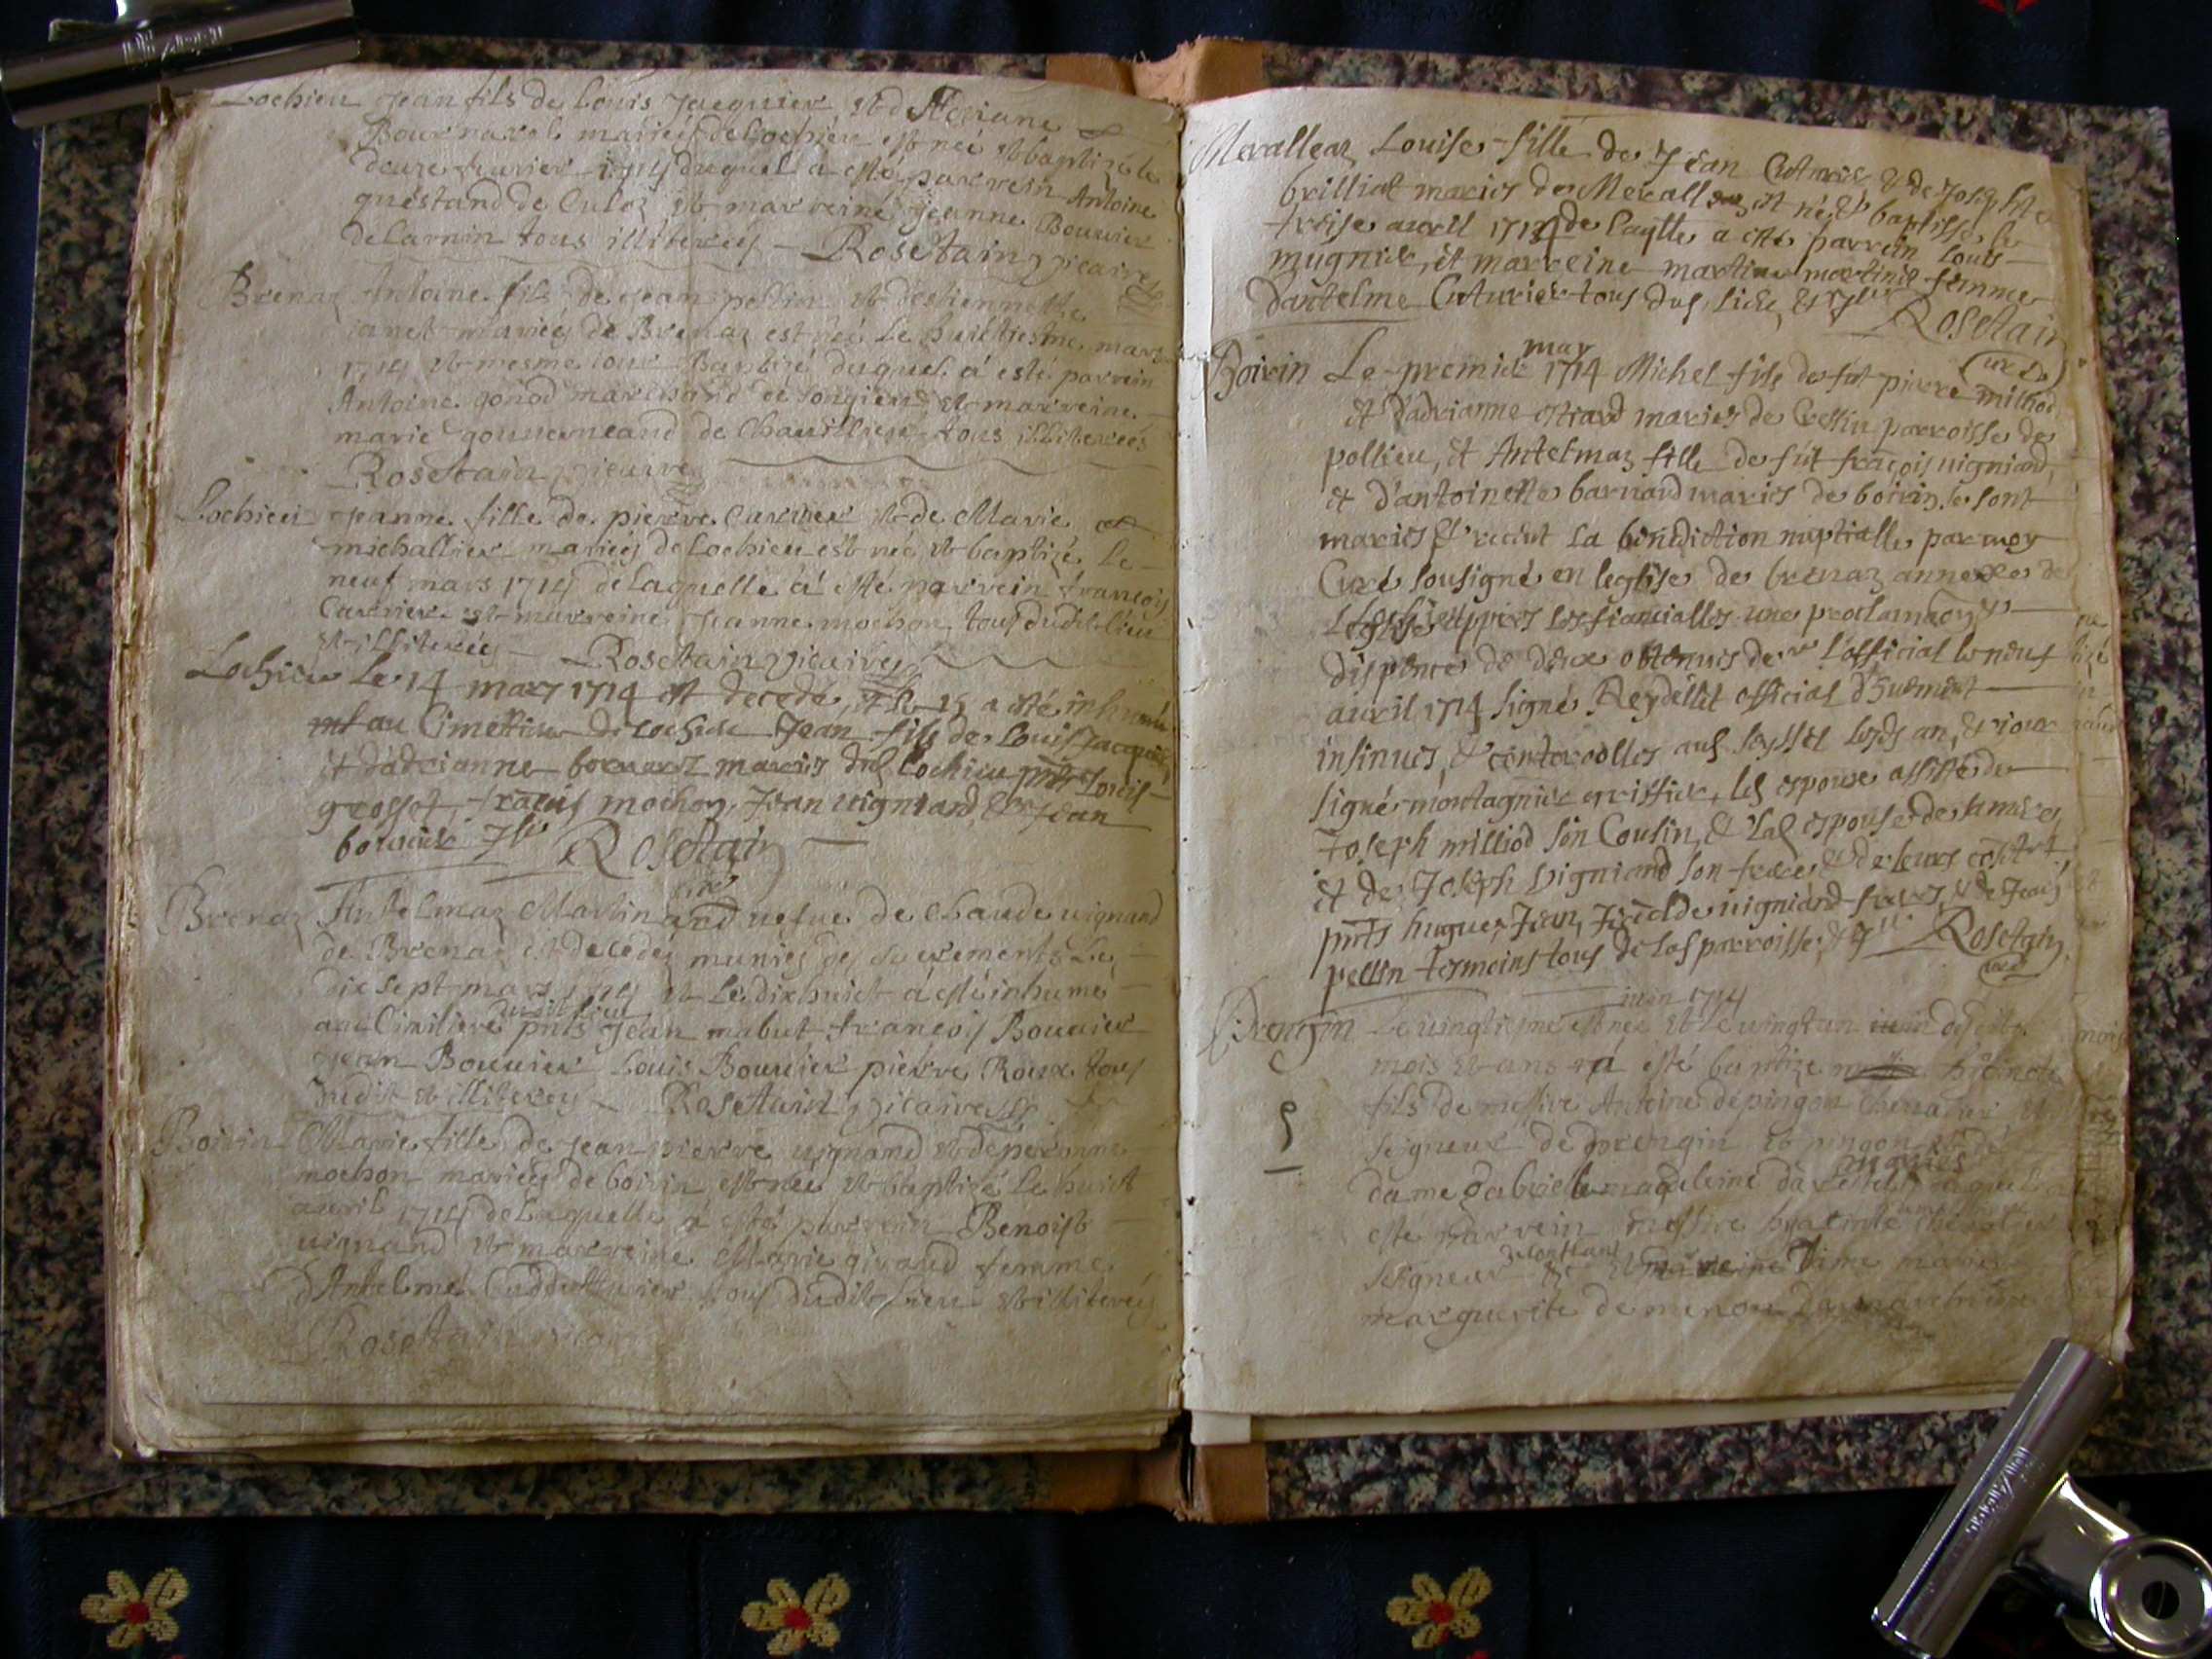 Lochieu Jean fils de Louis Jacquier et d Adriane
Bournard mariés de Lochieu est né et baptizé le
douze feurier 1714 duquel a esté parrein Antoine
questand de Culoz et marreine jeanne Bouuier
de Larnin tous illiterés Rosetain vicaire
Brenaz Antoine fils de Jean pellin et destiennette
janet mariés de Brenaz est né le huictiesme mars
1714 et mesme iour Baptizé duquel á esté parrein
Antoine gonod marchand de songieu et marreine
marie gouuerneand de Chauillieu tous illiterés
Rosetain vicaire
Lochieu Jeanne fille de pierre Carrier et de Marie
michallier mariés de Lochieu est née et baptizé Le
neuf mars 1714 de laquelle á esté parrein françois
Carrier et marreine Jeanne mochon tous dudit lieu
et illiterés Rosetain vicaire
Lochieu le 14 mars 1714 est decedé, et le 15 a esté inhumé
au Cimettiere de Lochieu Jean fils de Louis Jacquier
et dadrianne bornarz mariés dud Lochieu pnts Louis
grosset, fraçois mochon, Jean uigniand, et Jean
bouuier Jlls Rosetain
curé
Brenaz Antelmaz Martinand uefue de Claude uignand
de Brenaz est decedéz munies des sacrements Le
dix sept mars 1714 et le dixhuict á esté inhumé
dudit lieu
au Cimitiere pnts Jean mabut françois Bouuier
Jean Bouuier Louis Bouuier pierre Roux tous
dudit et illiterez Rosetain vicaire
Boirin Marie fille de Jean pierre uignand et de peronne
mochon mariés de boirin est née et baptizé Le huict
auril 1714 de Laquelle á esté parrein Benoist
uignand et marreine Marie girard femme
d'Antelme Cudduturier tous dudit lieu et illiterés
Rosetain vicaire
Meralleaz Louise fille de Jean Cuturier & de Josephte
brilliat mariés de Meralleaz est née & baptissé le
treise auril 1714 de laqlle a esté parrein Louis
mugnier, et marreine martine martinet femme
dantelme Cuturier tous dud lieu, & Jlls Rosetain
curé
may
Boirin Le premier 1714 Michel fils de fut pierre milliod
et d'adrianne ortiard mariés de Cressin parroisse de
pollieu, et Antelmaz fille de fut fraçois uigniand,
et d'antoinette barnard mariés de boirin se sont
mariés & receut La benediction nuptialle par moy
Curé sousigné en leglise de brenaz annexe de
Lochieu appres les fiancialles une proclamaon &
dispence de deux obtenues de mr L'official le neuf
auril 1714 signé Reydellet official
insinues, & controolles aud seyssel lesds an, & iour
signé montagnier greffier, led espoux assisté de
Joseph milliod son Cousin, & Lad espouse de sa mere,
et de Joseph Vigniand son frere,
pnts hugue, Jean, uigniand freres, & de Jean
pellin tesmoins tous de lad parroisse, & Jlls Rosetain
curé
iuin 1714
Prengin Le uingtiesme est nee et le uingtun desdits
mois et ans á esté baptize hyacinte
fils de messire Antoine de pingon
seigneur de prengin et pingon
mariés
dame gabrielle magdeleine
esté parrein messire hyacinte
seigneur et marreine Dame marie
marguerite de menon